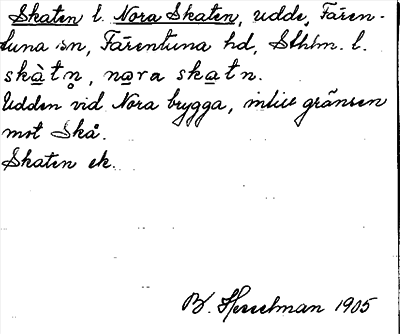 Skaten l. Nora Skaten, udde, Fären-
tuna sn, Färentuna hd, Sthlm. l.
skàtn̥, nara skatn.
Udden vid Nora brygga, intill gränsen
mot Skå.
Skaten ek.
B. Hesselman 1905